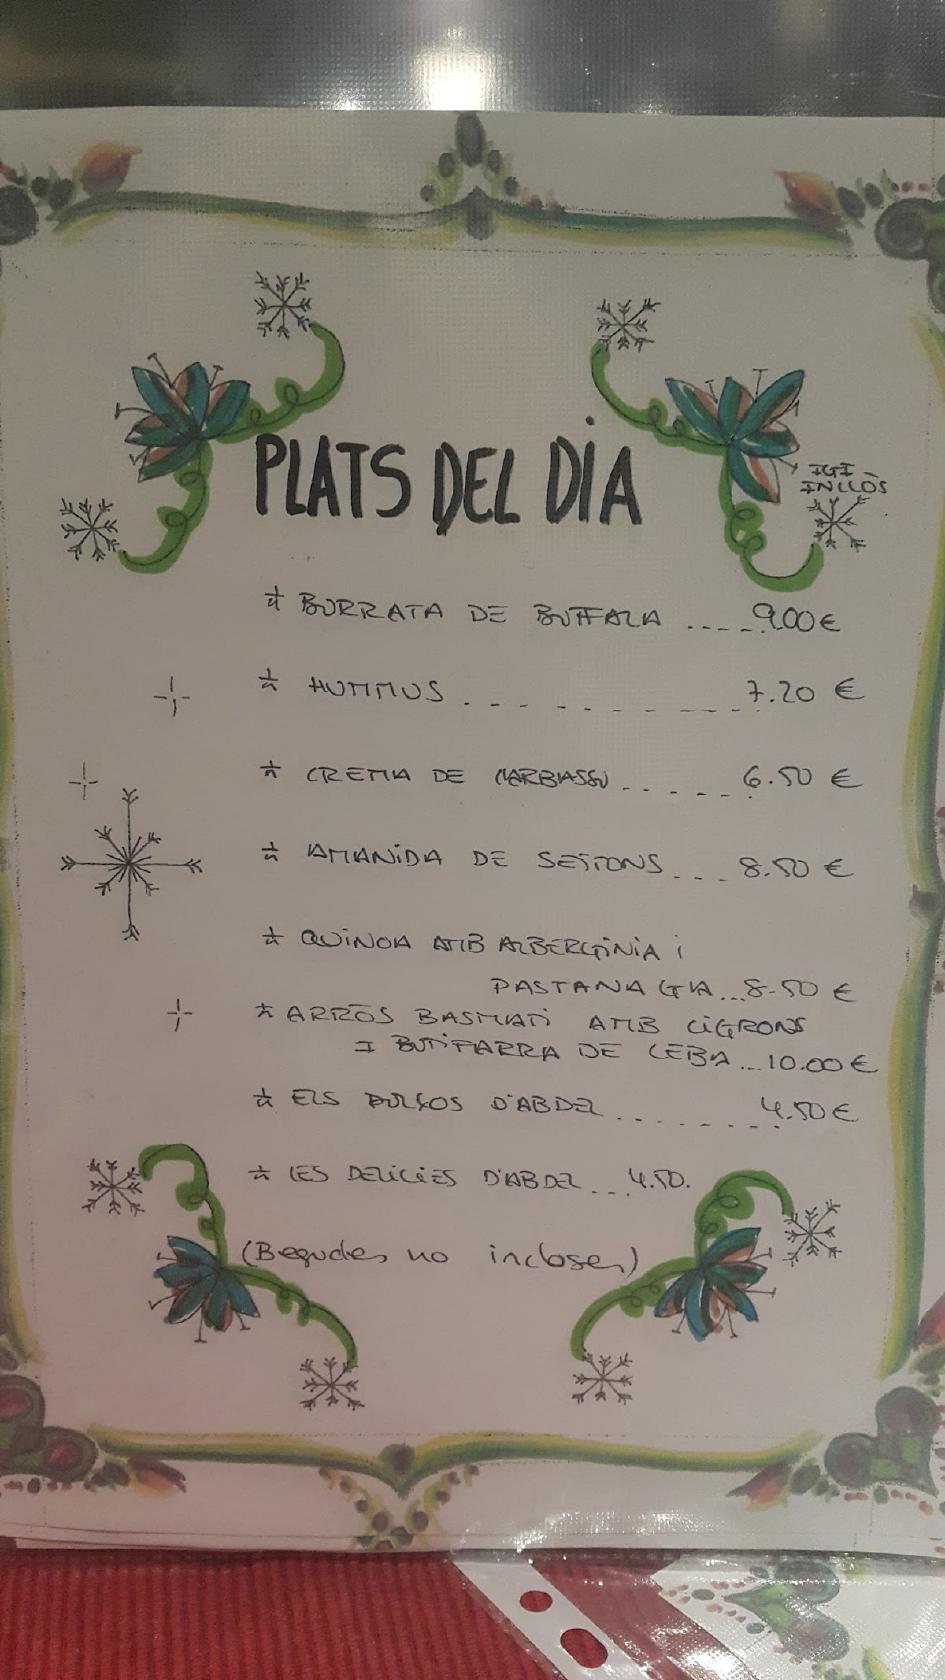 PLATS DEL DIA
IGI
INCLÒS
* BURRATA DE BUFFALA ....9.00 €
* HUMMUS . . . . . . . . . . . 7.20 €
* CREMA DE CARBASSÓ . . . . . . 6.50 €
* AMANIDA DE SEITONS . . . 8.50 €
* QUINOA AMB ALBERGINIA i
PASTANAGA...8.50 €
* ARRÒS BASMATI AMB CIGRONS
I BUTIFARRA DE CEBA...10.00 €
* ELS D'ABDEL . . . . . . . . . 4.50 €
* LES DELICIES D'ABDEL...4.50.
(Begudes no incloses)